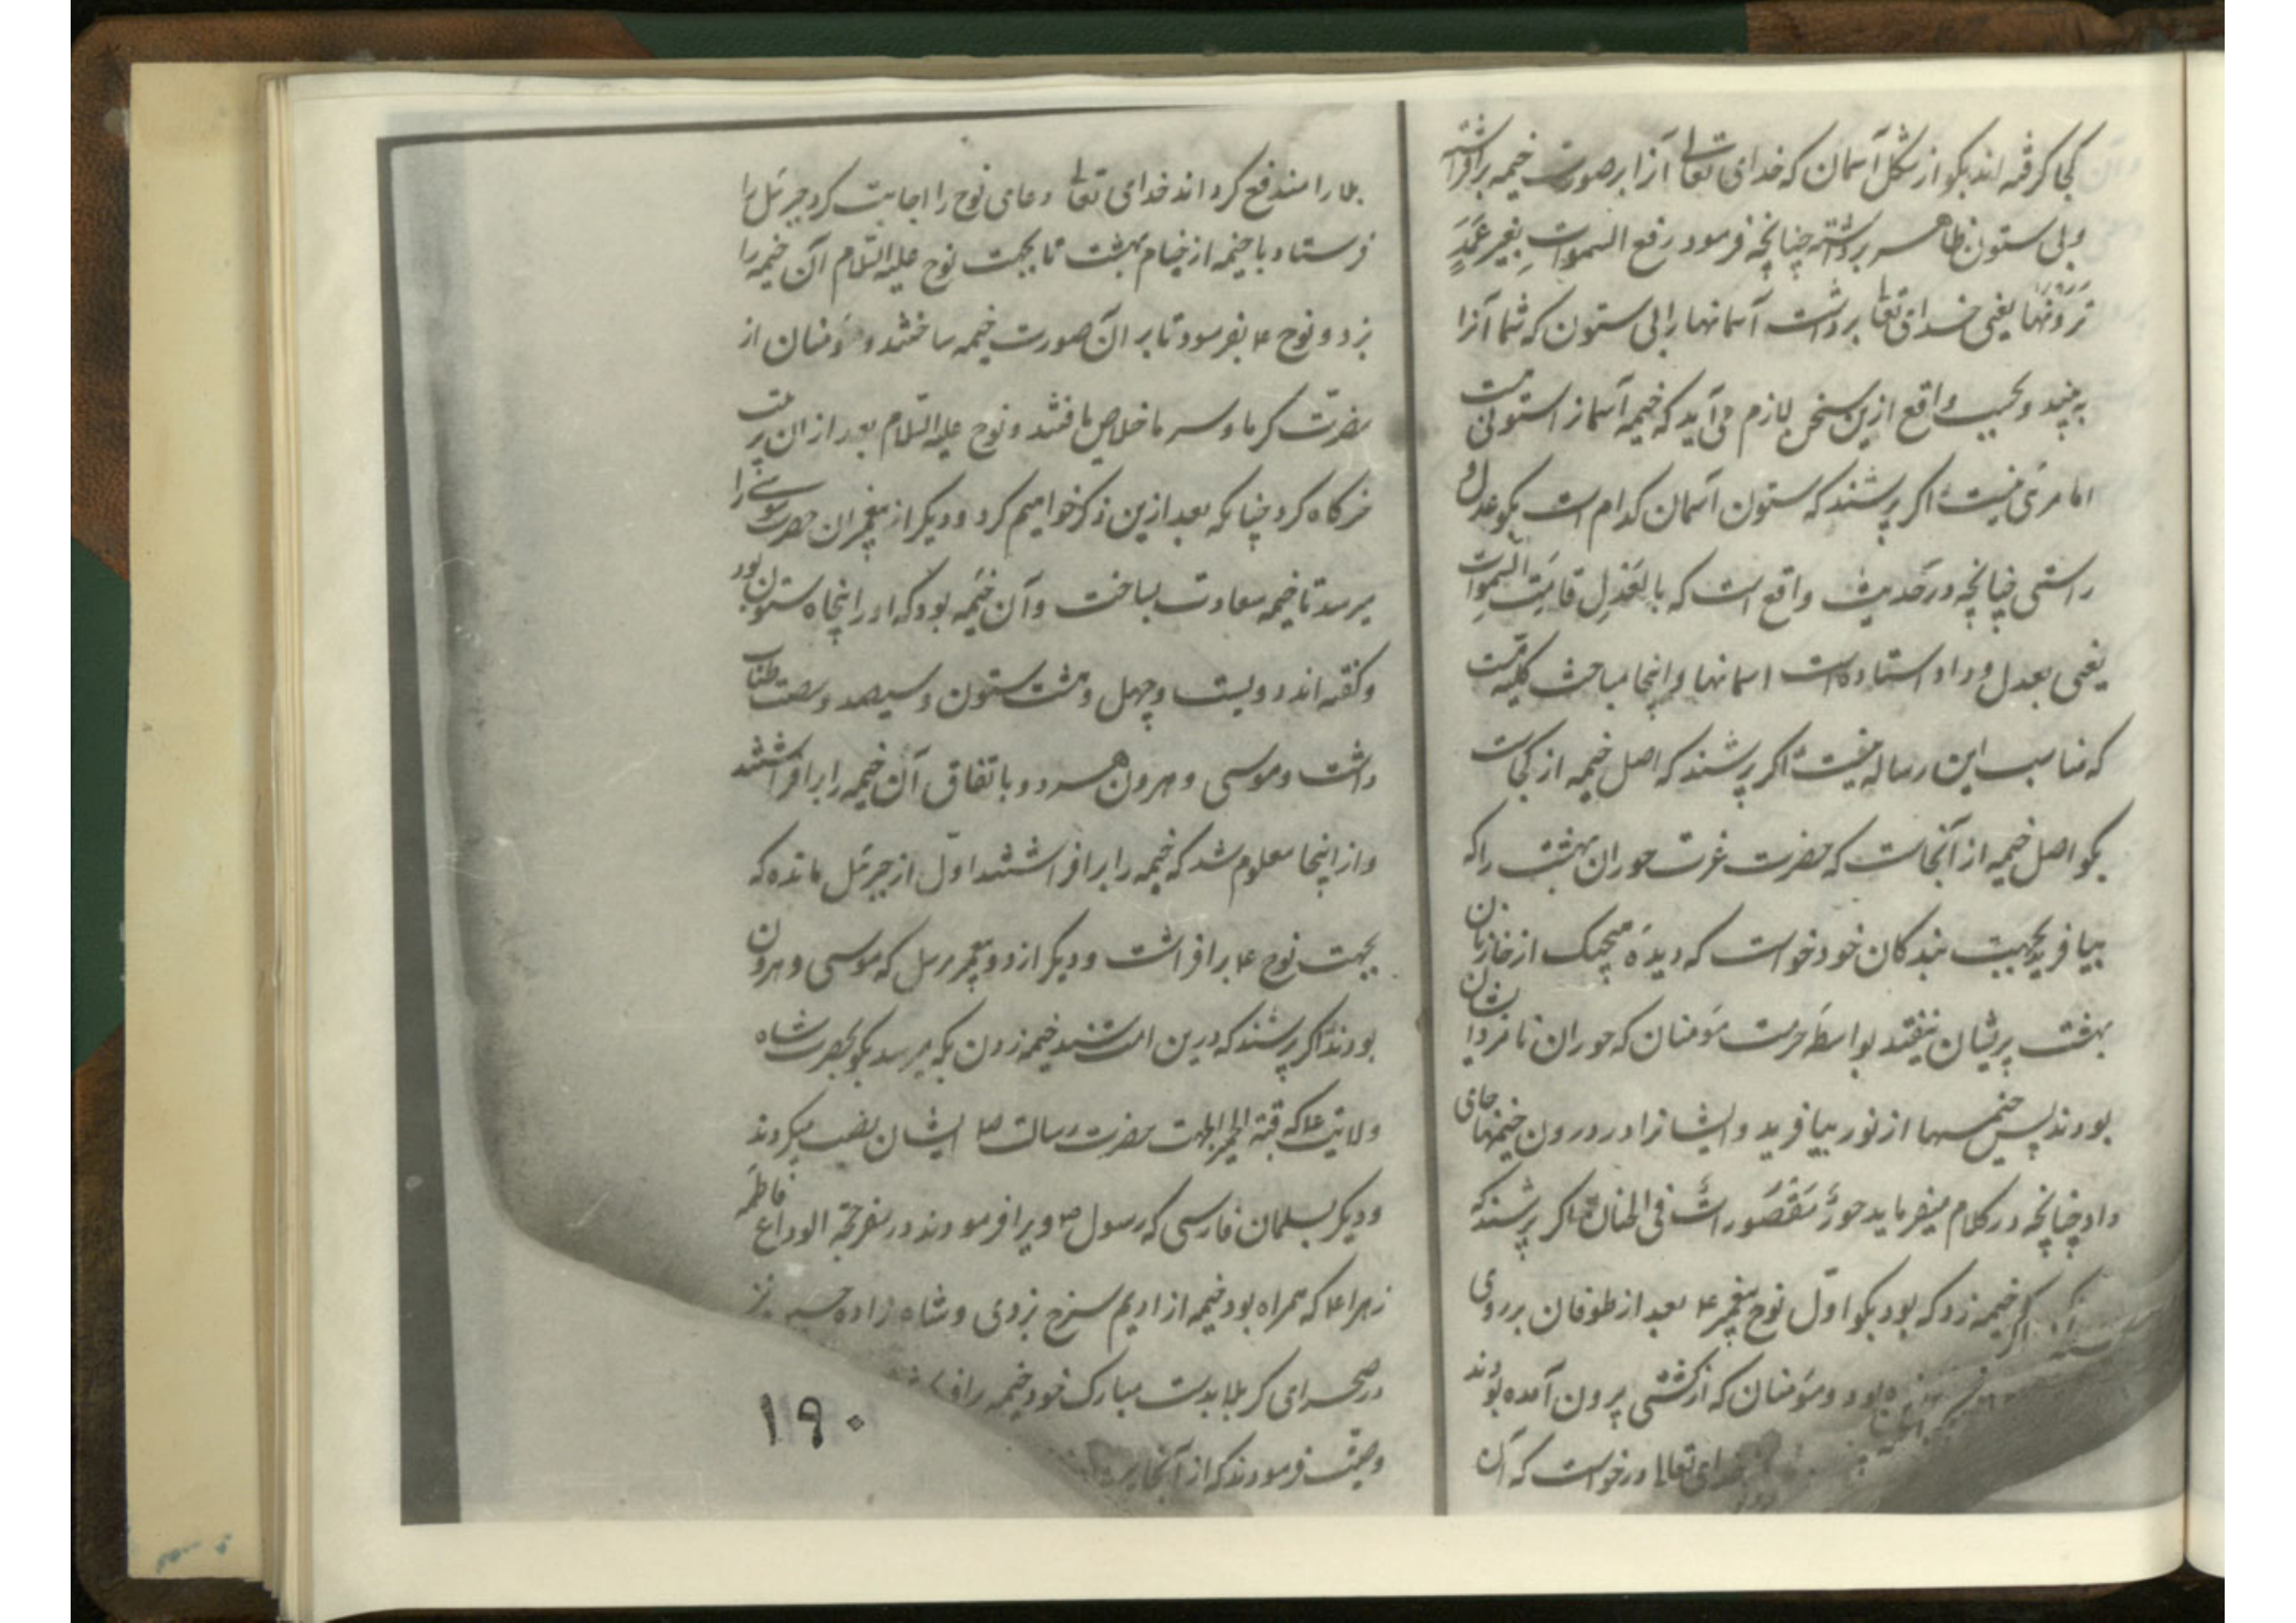 کجا کرفته اند بکو از شکل آسمان که خدای تعالی آنرا بر صورت خیمه برافراشته
و بی ستون ظاهر برداشته چنانچه فرمود رفع السموات بغیر عمد
ترونها یعنی خدای تعا برداشت آسمانها را بی ستون که شما آنرا
به بینید و بحسب واقع ازین سخن لازم می آید که خیمه آسمانرا ستونی هست
اما مرئی نیست اکر پرسند که ستون آسمان کدام است بکو عدل و
راستی چنانچه در حدیث واقع است که بالعدل قامت السموات
یعنی بعدل و داد استاده است اسمانها و اینجا مباحث کلیه است
که مناسب این رساله نیست اکر پرسند که اصل خیمه از کجاست
بکو اصل خیمه از آنجاست که حضرت عزت حوران بهشت را که
بیافرید بجهت بندکان خود خواست که دیده هیچیک از خازنان
بهشت بریشان نیفتد بواسطه حرمت مؤمنان که حوران نامزد ایشان
بودند پس خیمها از نور بیافرید و ایشانرا در درون خیمها جای
داد چنانچه در کلام میفرماید حور مقصورات فی الخیام اکر پرسند که
خیمه زد که بود بکو اول نوح پیغمبر ع بعد از طوفان بر روی
بود و مؤمنان که از کشتی بیرون آمده بودند
خدای تعالی درخواست که آن
بلا را مندفع کرداند خدای تعا دعای نوح را اجابت کرد جبرئیل را
فرستاد با خیمه از خیام بهشت تا بجهت نوح علیه السلام آن خیمه را
بزد و نوح ع بفرمود تا بر آن صورت خیمه ساختند و مؤمنان از
مضرت کرما و سرما خلاص یافتند و نوح علیه السلام بعد از ان
خرکاه کرد چنانکه بعد ازین ذکر خواهیم کرد و دیکر از پیغمبران حضرت موسی را
میرسد تا خیمه سعادت بساخت و آن خیمه بود که او را پنجاه ستون بود
و کفته اند دویست و چهل و هشت ستون و سیصد و شصت طناب
داشت و موسی و هرون هر دو باتفاق آن خیمه را برافراشتند
و از اینجا معلوم شد که خیمه را برافراشتند اول از جبرئیل مانده که
بجهت نوح ع برافراشت و دیکر از دو پیغمبر مرسل که موسی و هرون
بودند اکر پرسند که درین امت سند خیمه زدن بکه میرسد بکو بحضرت شاه
ولایت ع که قبة بجهت حضرت رسالت ص ایشان نصب میکردند
و دیکر بسلمان فارسی که رسول ص ویرا فرمودند در سفر حجة الوداع فاطمه
زهرا ع که همراه بود خیمه از ادیم سرخ بزدی و شاه زاده حسین نیز
در صحرای کربلا بدست مبارک خود خیمه
وصیت فرمودند که از آنجا
۱۹۰